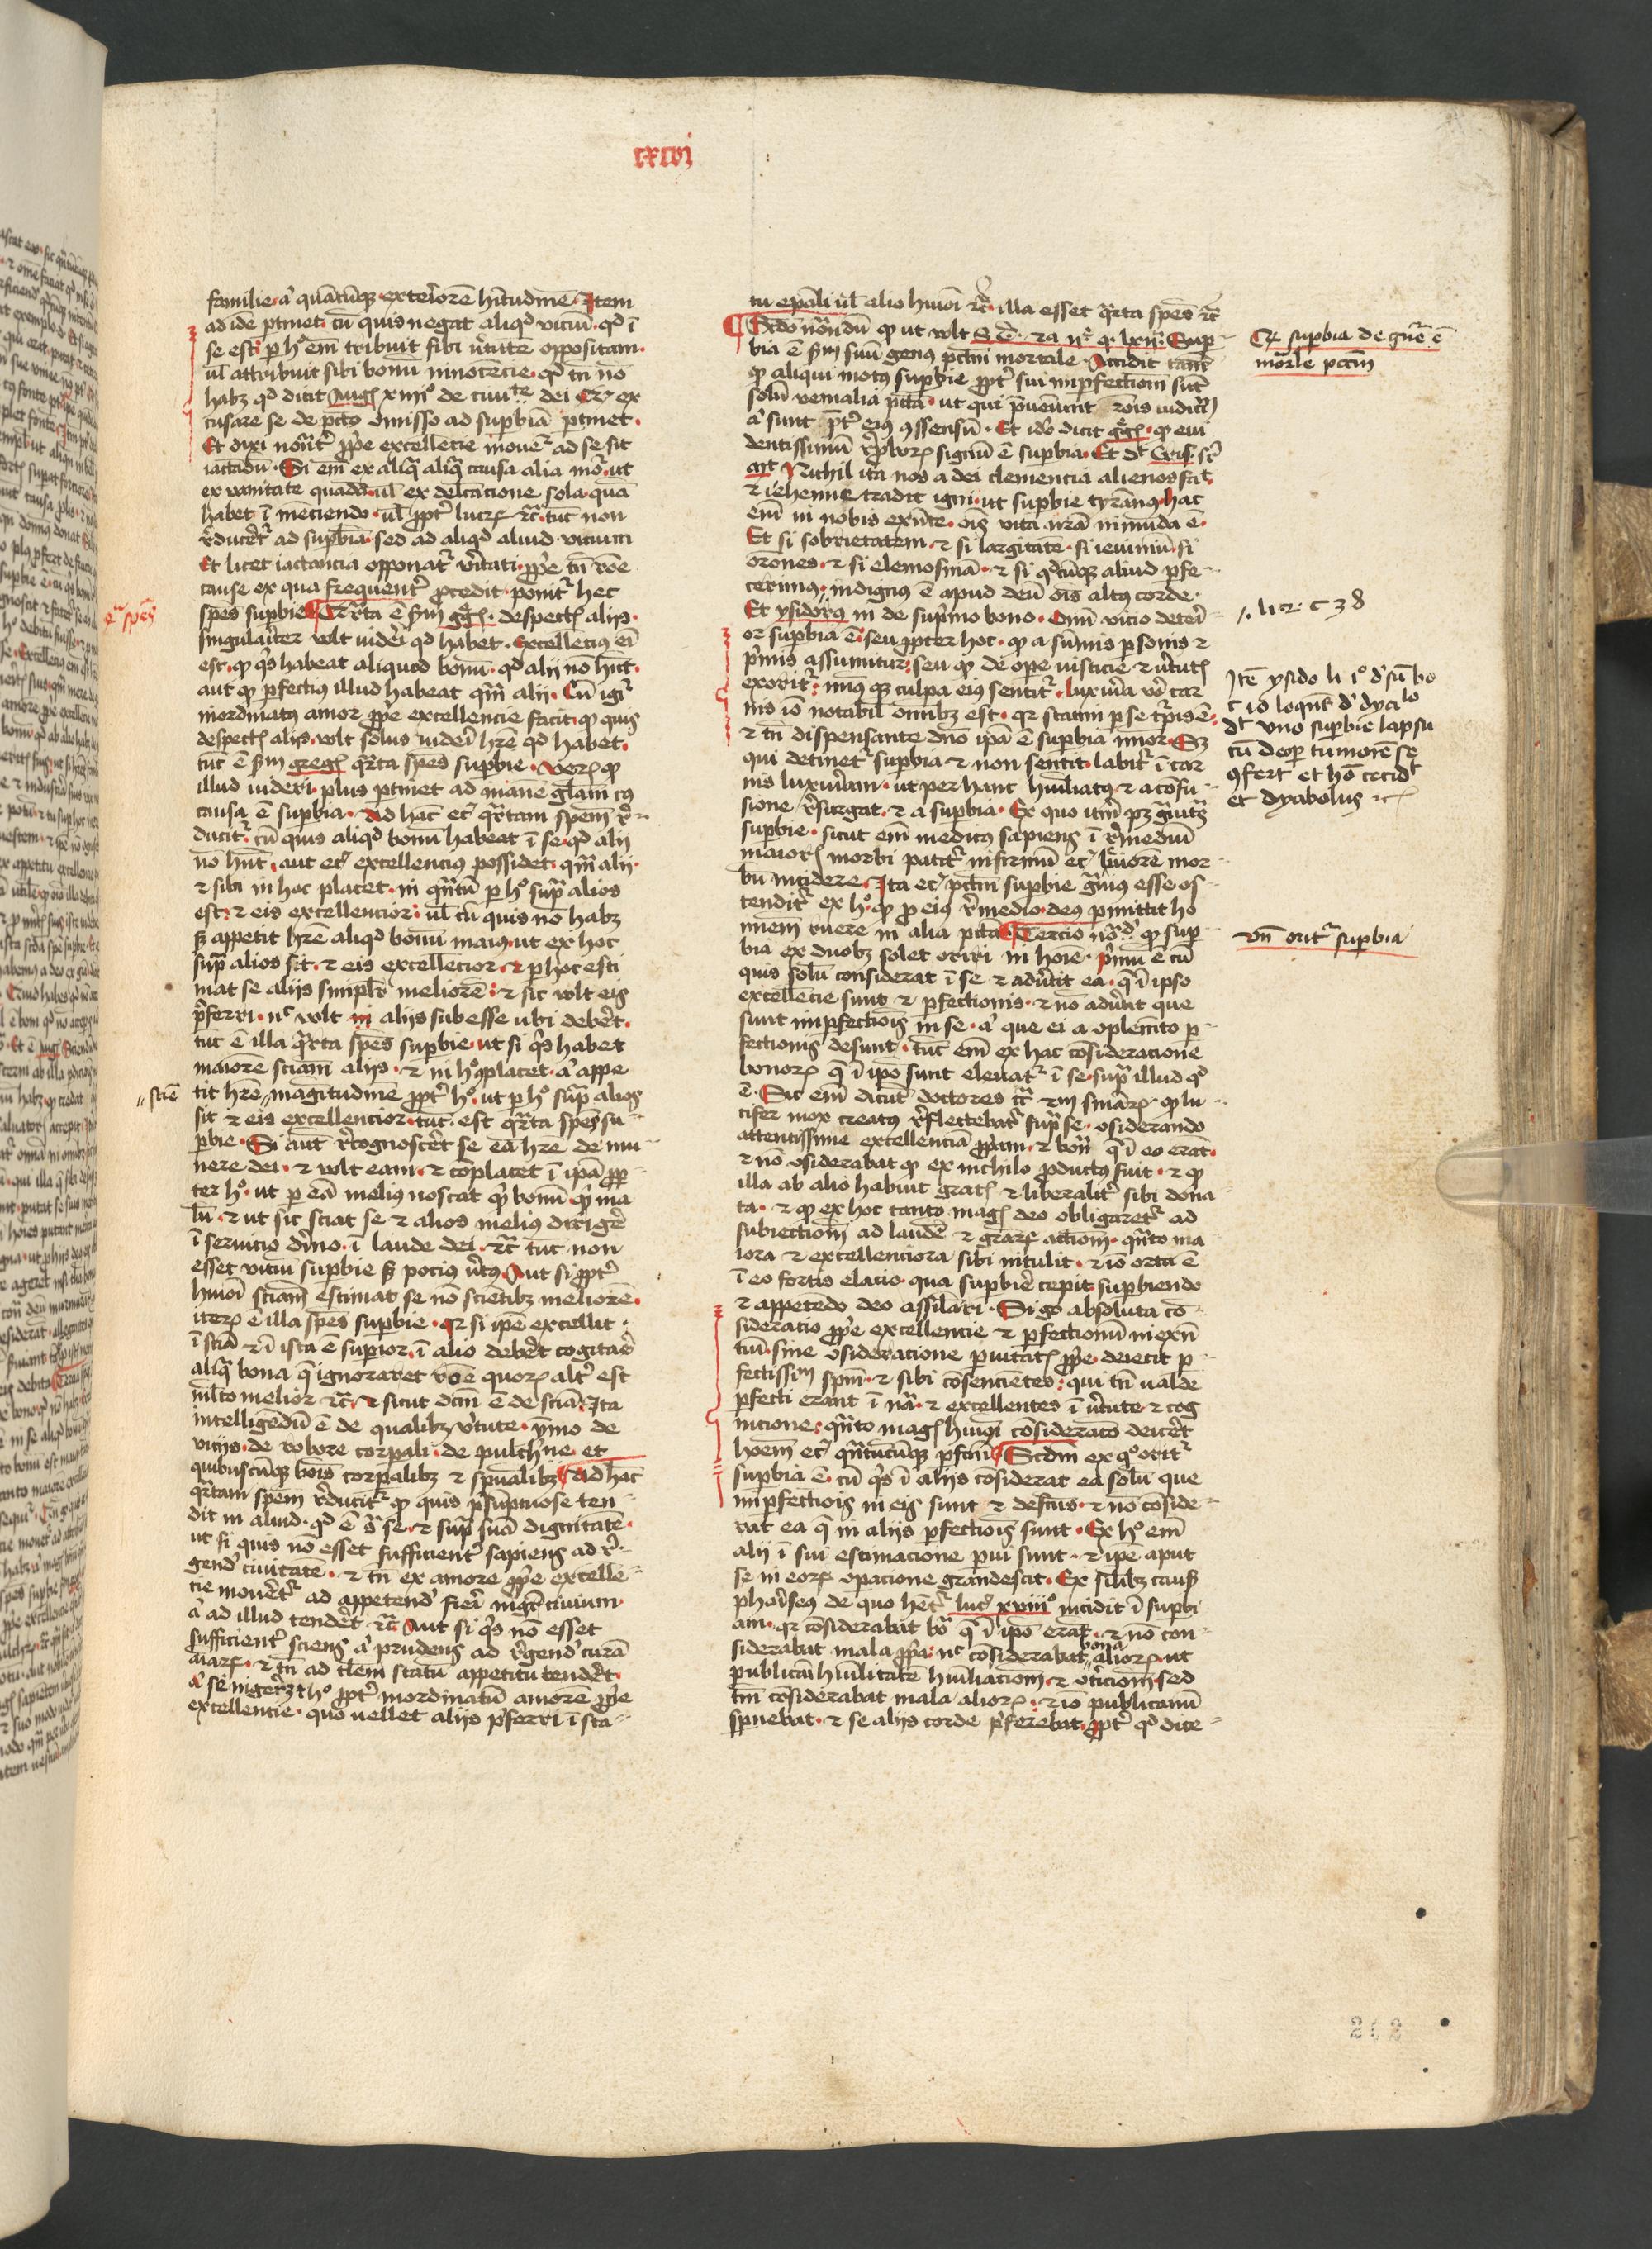 cxcvi
familie · a᷒ quācūqꝫ exteriorē hītudinē · Item
ad idē ptinet · cū quis negat aliqd viciū · qd ī
se est · ꝑ hͦ em̄ tribuit sibi v̓tutē oppositam ·
ul̄ attribuit sibi bonū innocēcie · qd tn̄ nō
habꝫ qd dicit Augꝯ xiiiiͦ de ciuite dei Cꝛ ex
cusare se de pctō om̄isso ad supbiā ptinet ·
Et dixi nōn̄tʳ ppe excellēcie mouetʳ ad se sic
iactādū · Si em̄ ex aliqͣ causa alia moꝰ ut
ex vanitate quadā · ul̄ ex delc̄acione sola · quā
habet ī menciendo · ul̄ ppt̓ lucrꝝ ꝛc̄ · tūc non
r̓ducer̓tʳ ad supbiā · sed ad aliqd aliud viciū
Et licet iactancia opponatʳ v̓itati · ppe tn̄ rōe
cause ex qua frequent̓ pcedit · ponitʳ hec
spēs supbie Cͬrta ē scdm ggͦꝛ · despectꝭ alijs ·
singularit̓ volt videri qd habet · Excellēcius eī
est · ꝙ qͥs habeat aliquod bonū · qd alij nō hn̄t ·
aut ꝙ pfectius illud habeat qm̄ alij · Cū igiʳ
inordinatus amor ppe excellencie facit ꝙ quis
despectꝭ alijs · volt solus videri hr̄e qd habet ·
tūc ē scdm gregꝭ qͬrta spēs supbie · Verꝝ ꝙ
illud videri · plus ptinet ad inane gl̄am cꝰ
causa ē supbia · Ad hāc ecͣ qͬrtam spēm r̓
ducitʳ · cū quis aliqd bonū habeat ī se · qd alij
nō hn̄t · aut ecͣ excellencius possidet · qm̄ alij ·
ꝛ sibi in hoc placet · in qn̄tū p hͦ supͣ alios
est · ꝛ eis excellencior · ul̄ cū quis nō habꝫ
sꝫ appetit hr̄e aliqd bonū maius · ut ex hoc
supͣ alios sit · ꝛ eis excellēcior · ꝛ p hoc esti
mat se alijs simplr̄ meliorē · ꝛ sic volt eis
p̓ferri · nͨ volt in alijs subesse ubi deber̓t ·
tūc ē illa qͬrta spēs supbie · ut si qͥs habet
maiorē sciam̄ alijs · ꝛ in hͦ ꝯplacet · a᷒ appe
tit hr̄e · magnitudinē ppt̓ hͦ · ut p hͦ supͣ alios
sit ꝛ eis excellencior · tūc est qͬrta spēs su
pbie · Si aut̄ r̓cognoscer̓t se eā hr̄e de mu
nere dei · ꝛ volt eam · ꝛ cōplacet ī ipā pp
ter hͦ · ut p eā melius noscat qd bonū qd ma
lū · ꝛ ut sic sciat se ꝛ alios melius dirigere
ī seruicio dīno · ī laude dei · ꝛc̄ tūc non
esset viciū supbie sꝫ pocius v̓tꝰ · Aut si ppt̓
hmōi sciam̄ estimat se nō sciētibꝫ meliorē ·
iterꝝ ē illa spēs supbie · qꝛ si ipē excellit ·
ī sciā ꝛ ī ista ē supior · ī alio deber̓t cogitar̓
aliqͣ bona que ignoraret rōe quorꝝ alt̓ est
ml̄to melior · ꝛc̄ · ꝛ sicut dcm̄ ē de sciā · Ita
intelligēdū ē de qualibꝫ v̓tute · ymo de
vicijs · de robore corpali · de pulchrīe · et
quibuscūqꝫ bonis corpalibꝫ ꝛ spūalibꝫ Ad hāc
qͬrtam spēm r̓ducitʳ ꝙ quis p̓suptuose ten
dit in aliud · qd ē sͣ se · ꝛ supͣ suā dignitatē ·
ut si quis nō esset sufficient̓ sapiens ad r̓
gendͣ ciuitatē · ꝛ tn̄ ex amore ppe excellē
cie mouer̓tʳ ad appetendͣ fieri mgr̄ ciuium
a᷒ ad illud tender̓t · ꝛc̄ Aut si qͥs nō esset
sufficient̓ sciens a᷒ prudens ad r̓gendͣ curā
aīarꝝ · ꝛ tn̄ ad tlem̄ statū appetitu tender̓t ·
a᷒ se nigeret · hͦ ppt̓ inordinatū amorē ppe
excellencie · quo vellet alijs p̓ferri ī sta
qͬ spēs
sciē
tu epāli ul̄ alio hmōi ꝛc̄ · illa esset qͬrta spēs ꝛc̄
Scdō nōn̄dū ꝙ ut volt S. t̄. 2a 2ͤ q. lxiiͣ · Sup
bia ē scdm suū genus pctm̄ mortale · Accidit tam̄
ꝙ aliqui motꝰ supbie ppt̓ sui impfectiōm sūt
solū venialia pctā · ut qui p̓ueniūt rōnis iudiciū
a᷒ sunt p̄t̓ eiꝰ ꝯssensū · Et idō dicit ggͦꝛ · ꝙ eui
dentissimū r̓pborꝝ signū ē supbia · Et dͭ Crisͦsͭ
Nichil ita nos a dei clemencia alienos facit
ꝛ iehenne tradit igni · ut supbie tyrānus · hac
em̄ in nobis exn̄te · oīs vita nr̄a īmūda ē ·
Et si sobrietatem · ꝛ si largitatē · si ieiuniū · si
orōnes · ꝛ si elemosinā · ꝛ si qdcūqꝫ aliud pfe
cerimus · indignus ē apud deū oīs altꝰ corde ·
Et ysidorus in de supmo bono · Omī vicio deteri
or supbia ē · seu ppter hoc · ꝙ a sūmis psonis ꝛ
p̓mis assumitur · seu ꝙ de ope iusticie ꝛ v̓tutꝭ
exoritʳ · minꝰ qꝫ culpa eius sentitʳ · luxuria v̓o car
nis iō notabil̓ omibꝫ est · qꝛ statim p se tʳpis ē ·
ꝛ tn̄ dispensante dn̄o ipā ē supbia minor · Sꝫ
qui detinetʳ supbia ꝛ non sentit · labitʳ ī car
nis luxuriam · ut per hanc humiliatꝰ · ꝛ a cōfu
sione r̓surgat · ꝛ a supbia · Ex quo itm̄ pꝫ gͣuitas
supbie · sicut em̄ medicus sapiens ī r̓mediū
maiorꝭ morbi patitʳ infirmū ecͣ leuiorē mor
bū incidere · Ita ecͣ pctm̄ supbie gͣuius esse os
tenditʳ ex hͦ · ꝙ p eius r̓medio · deus pmittit ho
minem ruere in alia pctā Tercio nōͣdͫ ꝙ sup
bia ex duobꝫ solet oriri in hoīe · p̓mū ē cū
quis solū considerat ī se ꝛ adu̓tit ea · q̄ ī ipso
excellencie sunt ꝛ pfectionis · ꝛ nō adu̓tit que
sunt impfectiōis in se · a᷒ que ei a oplemēto p
fectionis desunt · tūc em̄ ex hac cōsideracione
bonorꝝ q̄ ī ipō sunt eleuatʳ ī se · supͣ illud qd
ē · Sic em̄ dicūt doctores cͬcͣ 2m sniārꝝ · ꝙ lu
cifer mox creatus r̓flectebatʳ supͣ se · ꝯsiderando
attentissime excellenciā pp̓am · ꝛ bonū q̄ ī eo erāt ·
ꝛ nō ꝯsiderabat ꝙ ex nichilo pductus fuit · ꝛ ꝙ
illa ab alio habuit gratꝭ ꝛ liberalit̓ sibi dona
ta · ꝛ ꝙ ex hoc tanto magꝭ deo obligaretʳ ad
subiectiōm ad laudē ꝛ gr̄arꝝ actiom̄ · qn̄to ma
iora ꝛ excellenciora sibi intulit · ꝛ iō orta ē
ī eo fortis elacio · qua supbir̓ cepit · supbiendo
ꝛ appetēdo deo assilari · Si g̊ absoluta cō
sideratio ppe excellencie ꝛ pfectionū inexn̄
tiū · sine ꝯsideracione puitatꝭ ppe · deiecit p
fectissim̄ spm̄ · ꝛ sibi cōsencientes · qui tn̄ valde
pfecti erant ī nͣ · ꝛ excellentes ī v̓tute ꝛ cog
nitione · qn̄to magꝭ hmōi cōsideraco deicer̓t
hoēm ecͣ qn̄tūcūqꝫ pfcm̄ Scdm ex qͦ oritʳ
supbia ē · cū qͥs ī alijs cōsiderat ea solū que
impfectiōis in eis sunt ꝛ defectus · ꝛ nō cōside
rat ea q̄ in alijs pfectiōis sunt · Ex hͦ em̄
alij ī sui estimacione pui sunt · ꝛ ipē aput
se in eorꝝ ꝯpacione grandescit · Ex silibꝫ causis
phariseus de quo hētʳ luc̓ xviiiͦ incidit ī supbi
am · qꝛ cōsiderabat bͦ q̄ ī ipō erāt · ꝛ nō con
siderabat mala pp̓a · nͨ cōsiderabat bona aliorꝝ · ut
publicāi humilitatē humiliaciom̄ · ꝛ ꝯt̓iciom̄ · sed
tm̄ cōsiderabat mala aliorꝝ · ꝛ iō publicanū
spnebat · ꝛ se alijs corde p̓ferebat · ppt̓ qd dice
Cꝛ supbia de gn̄e ē
morl̄e pctm̄
li 2 · c 38
Itē ysido li 2ͦ dͤ sū bo
c io loquēs dͤ dyaͦlo
dͭ vno supbie lapsu
cū deoꝝ tumorē se
ꝯfert et hō cecidͭ
et dyabolus ꝛc
vn̄ oritʳ supbia
202